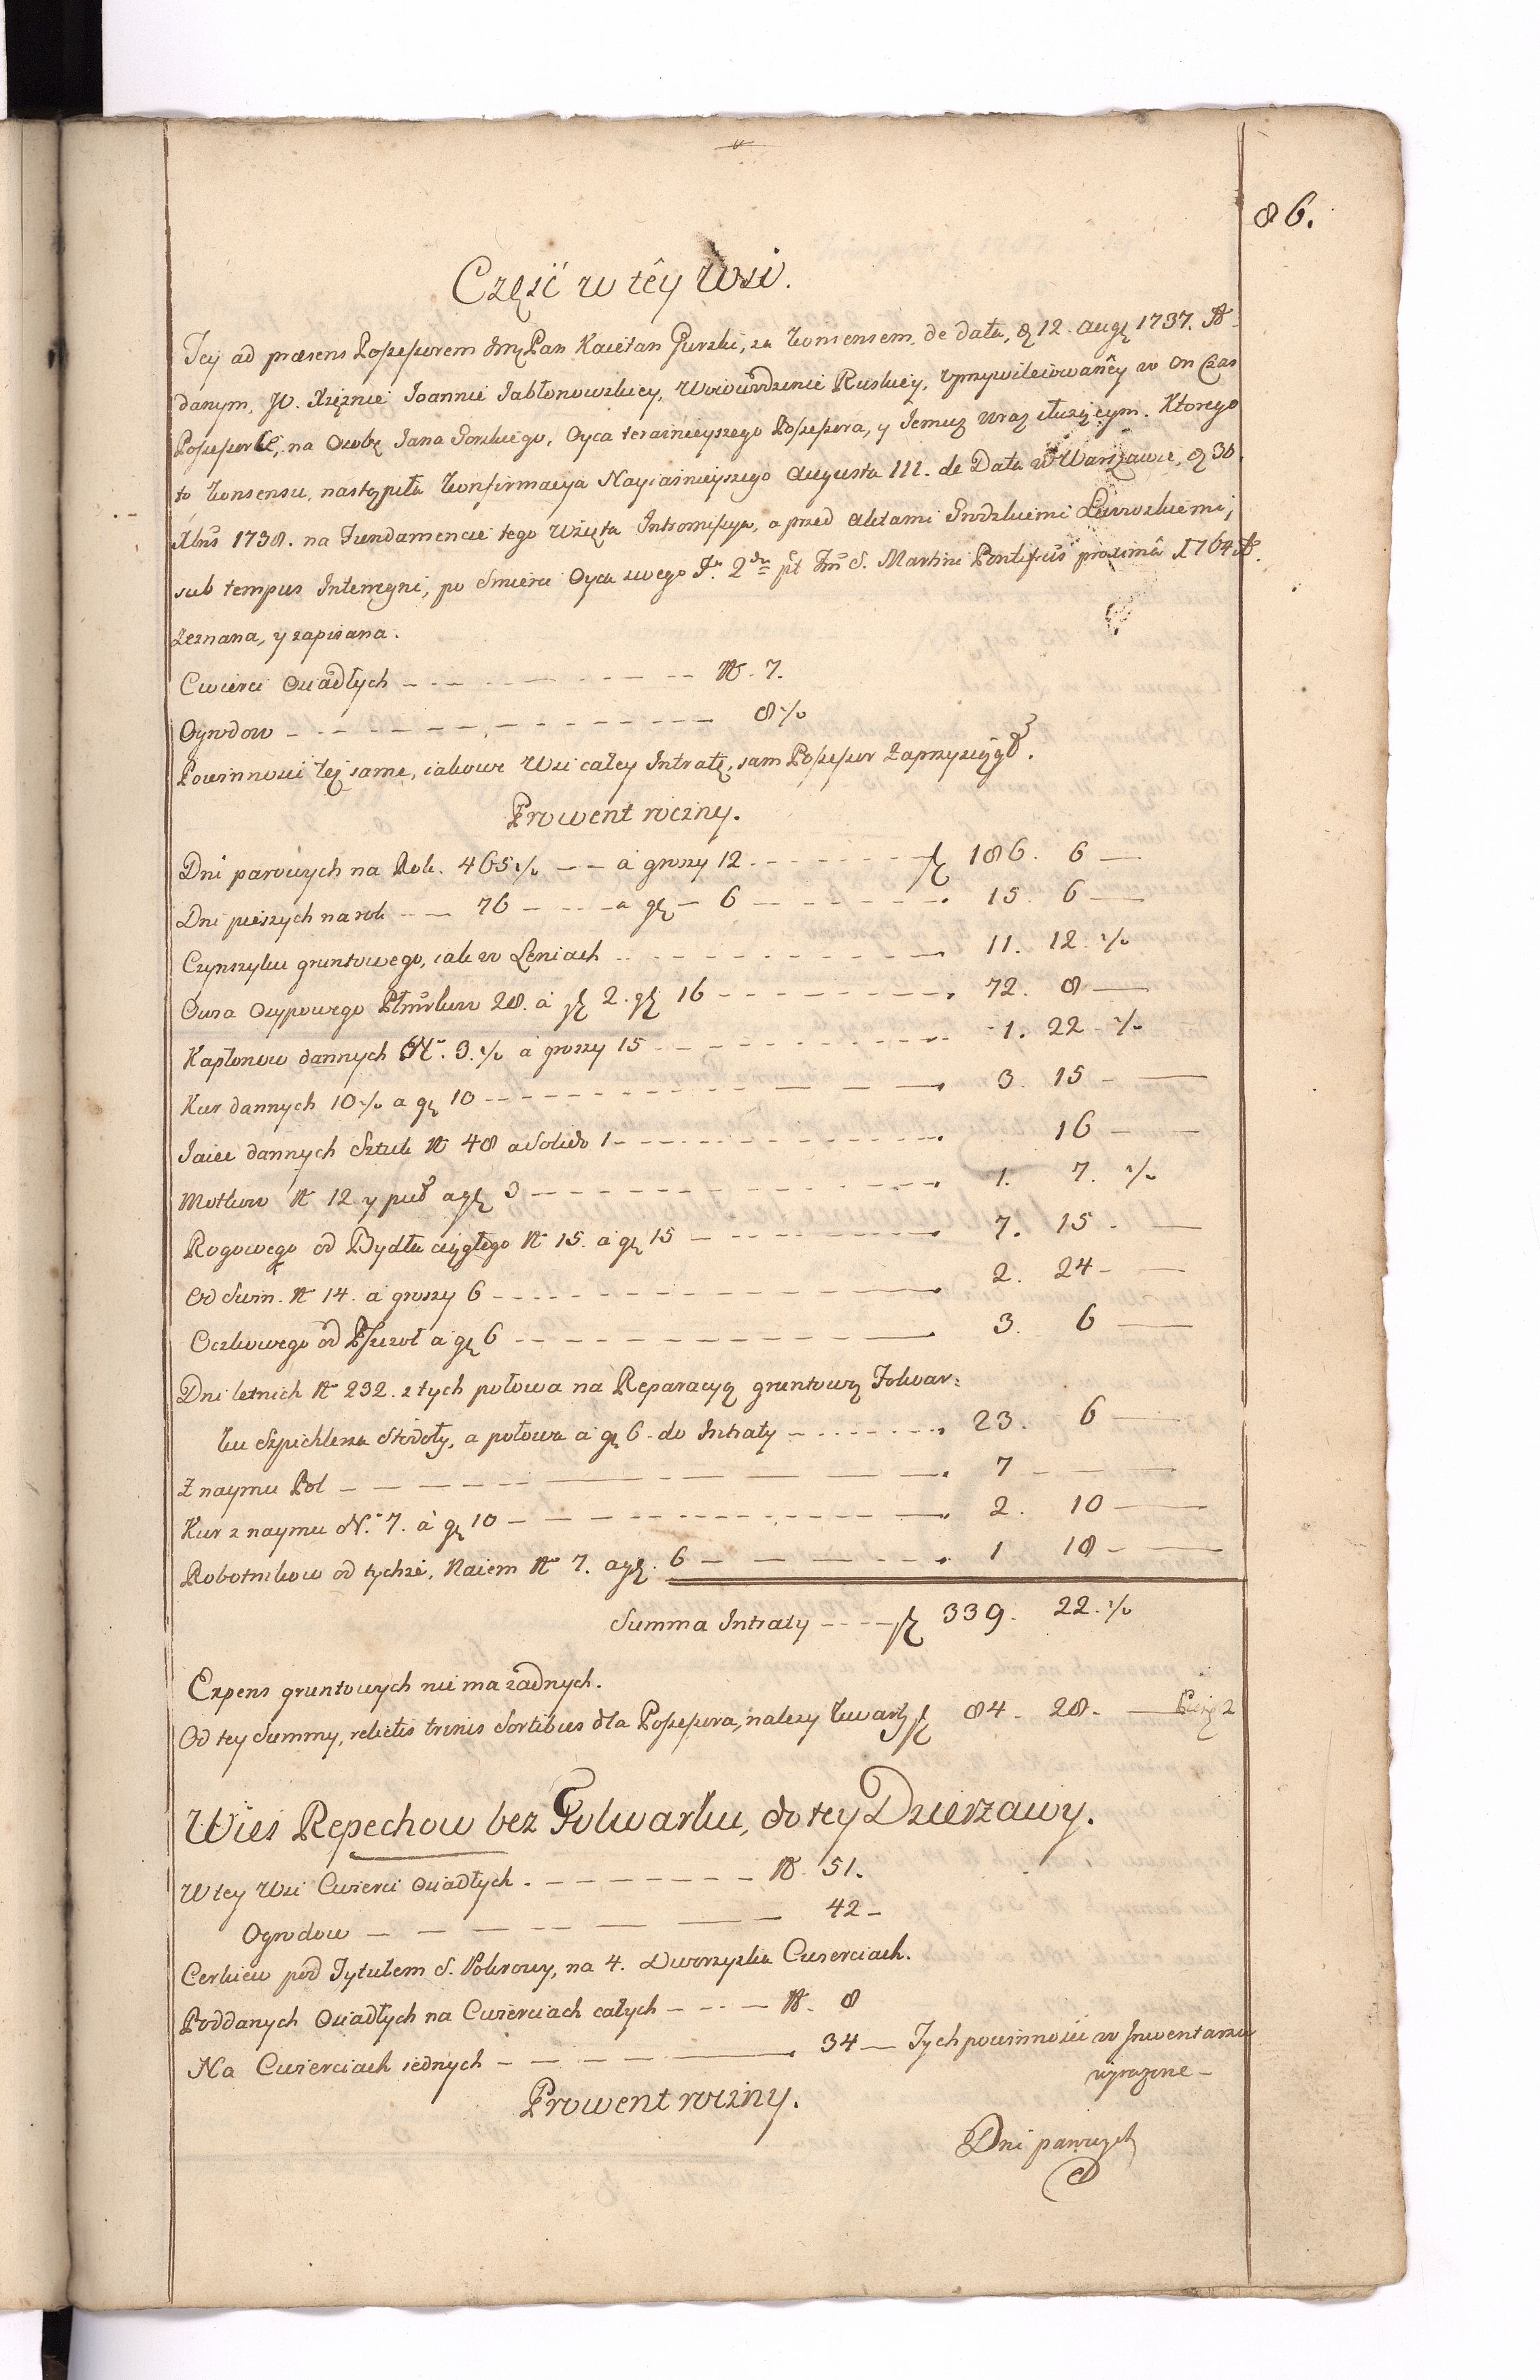 86.
Część w têy Wsi.
Tey ad præsens Possessorem Jmę Pan Kaietan Gurski, za Konsensem de data, 12. Augę 1737. A°
danym, JW. Xiężnie Joannie Jabłonowskiey, Woiowodzinie Ruskiey, Uprzywileiowaney w on Czas
Possessorce, na Osobę Jana Gorskiego, Oyca teraznieyszego Possessora, y Jemuz wraz służącym. Ktorego
to Konsensu, nastąpiła Konfirmacya Nayiasnieyszego Augusta III. de Data w Warszawie, 30.
Xbris 1738. na Fundamencie tego Wzięta Intromissya, a przed Aktami Grodzkiemi Lwowskiemi,
sub tempus Interregni, po Smierci Oyca swego F. 2da pt Fm S. Martini Pontificis proximâ 1764 A°.
Zeznana, y zapisana.
Cwierci Osiadłych — N°. 7.
Ogrodow — 8 ½
Powinnosci też same, iakowe Wsi całey Intratę, sam Possessor Zaprzysiągł.
Prowent roczny.
Dni parowych na Rok. 465 ½ — à groszy 12 — zł 186. 6 —
Dni pieszych na rok — 76 — a gr — 6 — 15. 6 —
Czynszyku gruntowego, iak w Leniach — 11. 12. ½
Owsa Osypowego Półmiarkow 28. à zł 2. gr 16 — 72. 8 —
Kapłonow dannych N°. 3. ½ à groszy 15 — 1. 22 - ½
Kur dannych 10 ½ a gr 10 — 3. 15 —
Jaiec dannych Sztuk N° 48 a Solido 1 — 16 —
Motkow N° 12 y puł a gr 3 — 1. 7. ½
Rogowego od Bydła ciągłego N° 15. à gr 15 — 7. 15 —
Od Swin. N° 14. à groszy 6 — 2. 24 —
Oczkowego od Pszczoł à gr 6 — 3. 6 —
Dni letnich N° 232. z tych połowa na Reparacyą gruntową Folwar=
ku Szpichlerza Stodoły, a połowa à gr 6 - do Intraty — 23. 6 —
Z naymu Pol — 7 —
Kur z naymu N.° 7. à gr 10 — 2. 10 —
Robotnikow od tychże, Naiem N° 7. a gr. 6 — 1 18 —
Summa Intraty — zł 339. 22. ½
Expens gruntowych nie ma żadnych.
Od tey Summy, relictis trinis Sortibus dla Possessora, nalezy kwarty zł 84 - 28 - — 2
Wies Repechow bez Folwarku, do tey Dzierżawy.
W tey Wsi Cwierci Osiadłych — N° 51.
Ogrodow — 42 -
Cerkiew pod Tytułem S. Pokrowy, na 4. Dworzyska Cwierciach.
Poddanych Osiadłych na Cwierciach całych — N°. 8
Na Cwierciach iednych — 34 — Tych powinnosci w Inwentarzu
wyrażone -
Prowent roczny.
Dni parowych